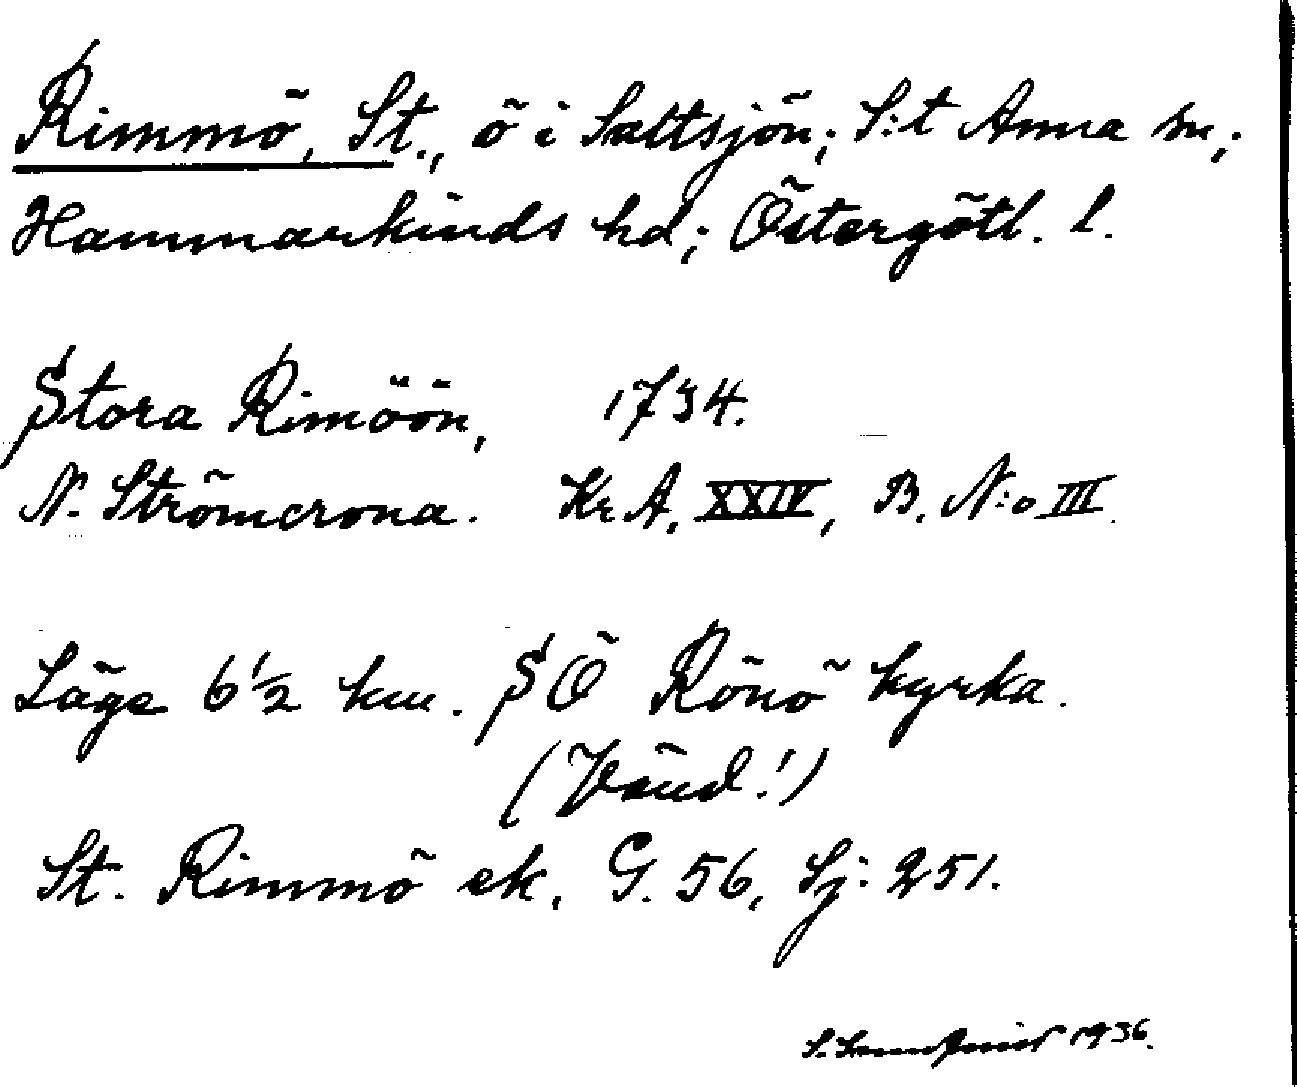 Rimmö, St., ö i Saltsjön; S:t Anna sn,;
Hammarkinds hd; Östergötl. l.
Stora Rimöön, 1734.
N. Strömcrona. Kr A. XXIV, B. N:o III.
Läge 6 1/2 km. SÖ Rönö kyrka.
(Vänd!)
St. Rimmö ek. G. 56, Sj: 251.
1936.